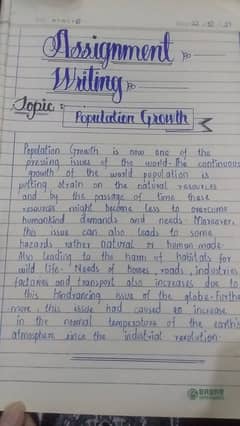 Assignment
Writing
Topic :
Population Growth
Population Growth is now one of the
pressing issues of the world. the continuous
growth of the world population is
putting strain on the natural resources
and by the passage of time these
resources might become less to overcome
humankind demands and needs. Moreover,
this issue can also leads to some
hazards rather natural or human made.
Also leading to the harm of habitats for
wild life. Needs of houses, roads, industries
factories and transport also increases due to
this hindrancing issue of the globe. further
more, this issue had caused to increase
in the normal temperature of the earth's
atmosphere since the industrial revolution.